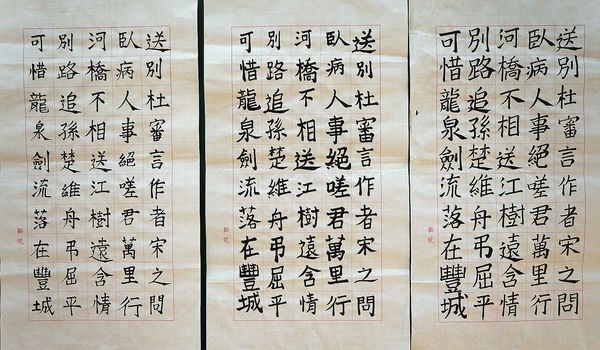 送別杜審言作者宋之問
臥病人事絕嗟君萬里行
河橋不相送江樹遠含情
別路追孫楚維舟吊屈平
可惜龍泉劍流落在豐城
送別杜審言作者宋之問
臥病人事絕嗟君萬里行
河橋不相送江樹遠含情
別路追孫楚維舟吊屈平
可惜龍泉劍流落在豐城
送別杜審言作者宋之問
臥病人事絕嗟君萬里行
河橋不相送江樹遠含情
別路追孫楚維舟吊屈平
可惜龍泉劍流落在豐城